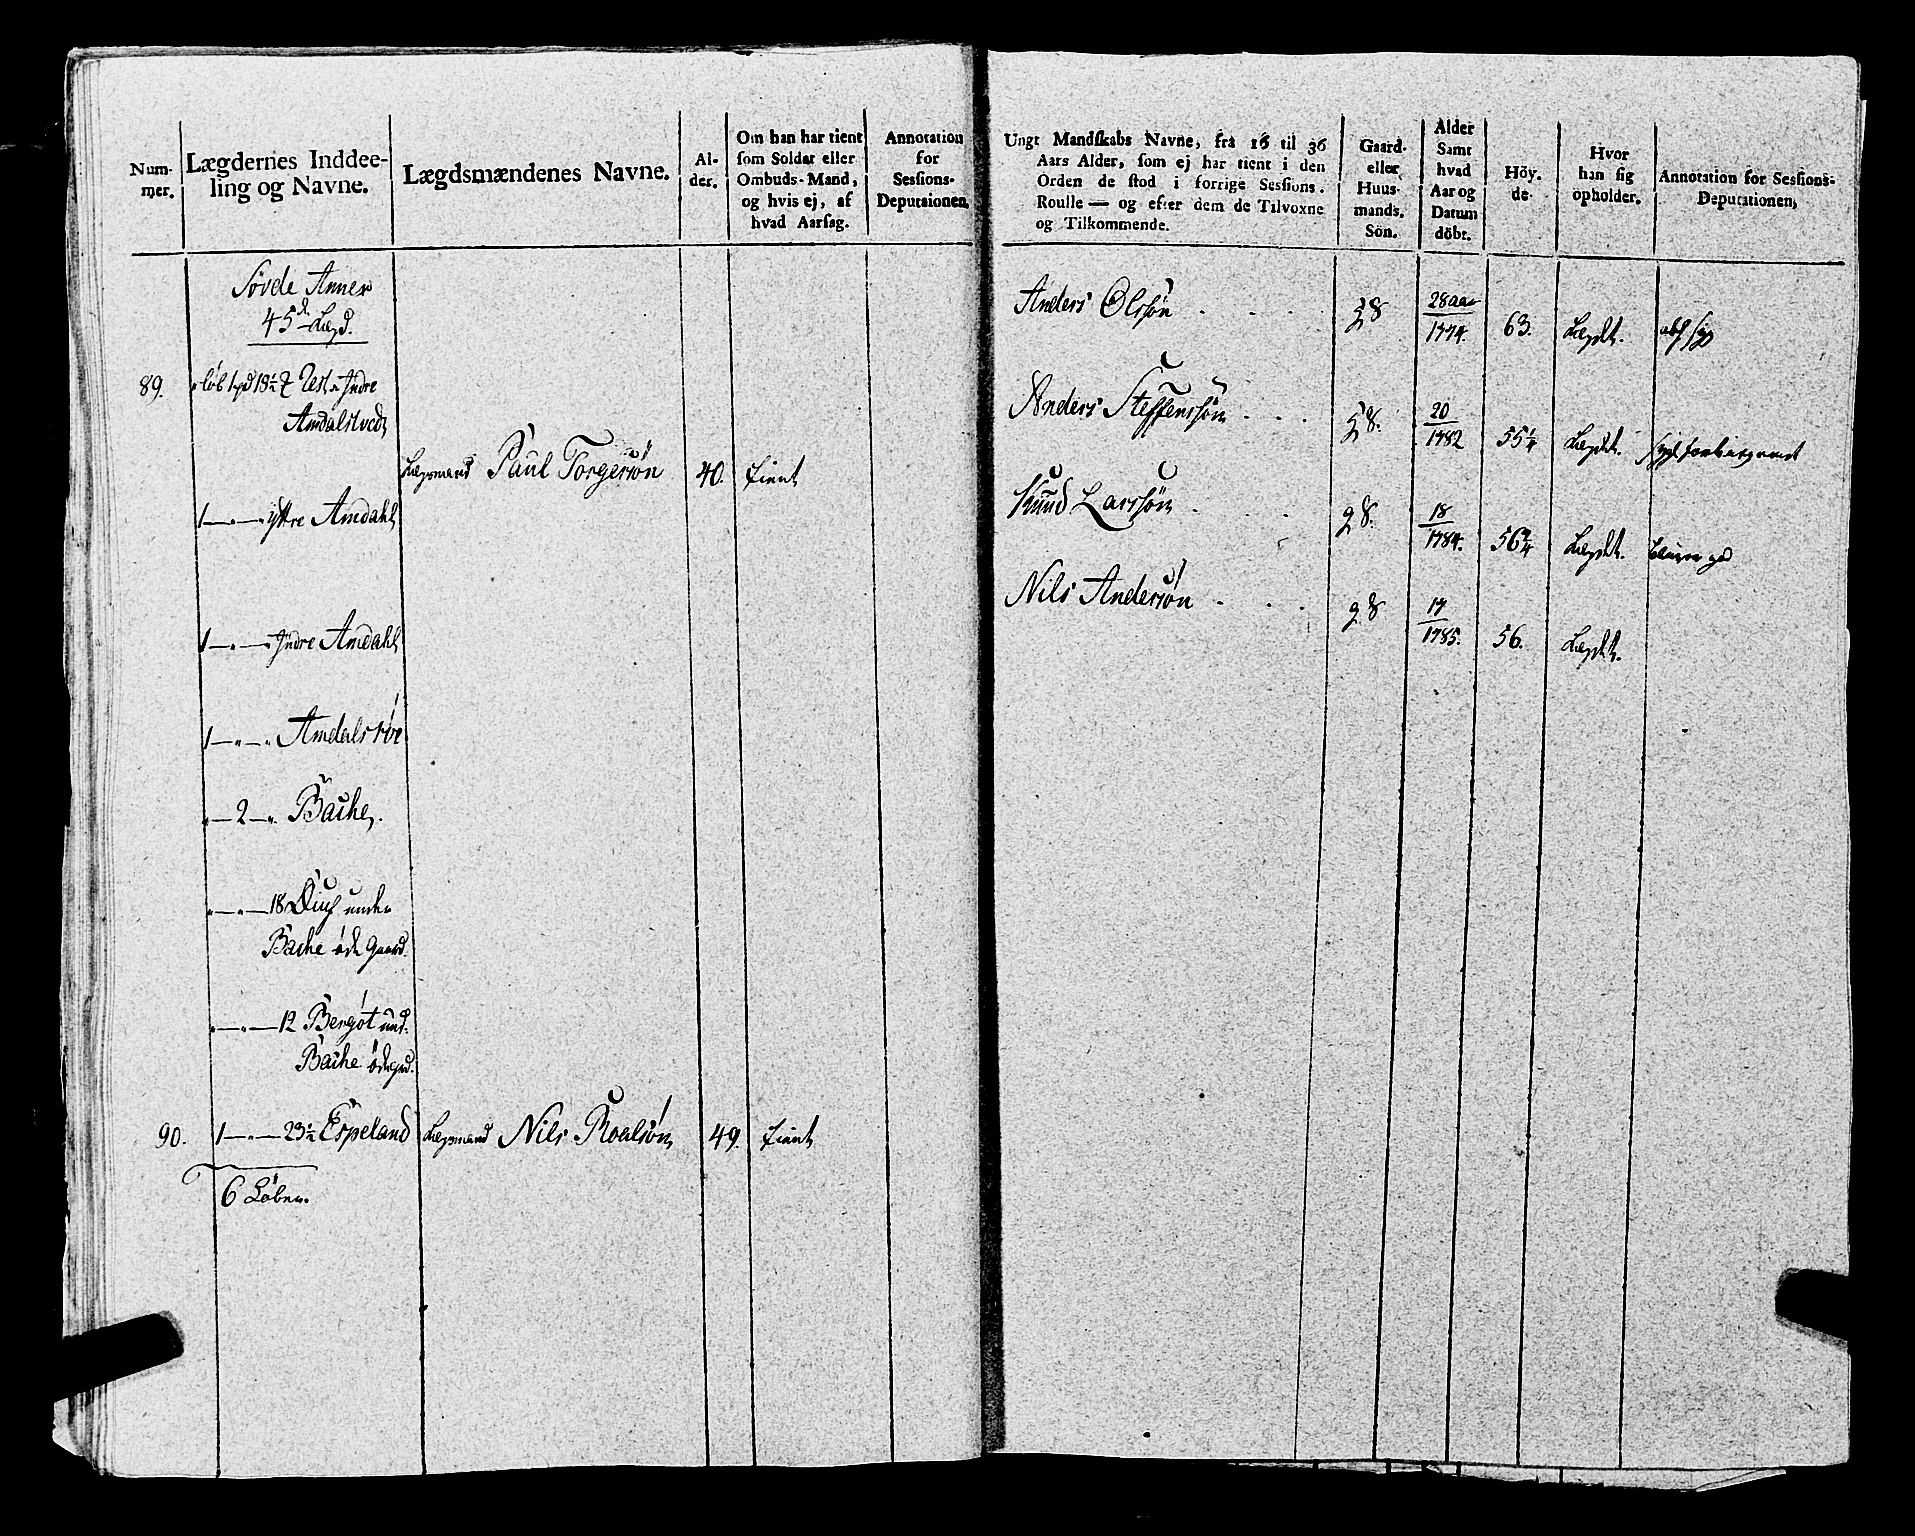 Num-
mer.
Lægdernes Inddee-
ling og Navne.
Lægdsmændenes Navne.
Al-
der.
Om han har tient
som Soldat eller
Ombuds-Mand,
og hvis ej, af
hvad Aarsag.
Annotation
for
Sessions-
Deputationen.
Søvde Annex
45de Lægd.
89.
løb 1 pd 18 1/2 Vest Indre
Amdalstvedt
Lægsmand Paul Torgersøn 40. tient
1 Yttre Amdahl
1 Indre Amdahl
1 Amdalsrøe
2 Bache.
18 under
Bache øde Gaard.
12 Bergøt und.
Bache ødegrd.
90. 1 23 1/2 Espeland Lægsmand Nils Roalsøn 49. tient
6 Løber.
Ungt Mandskabs Navne, fra 16 til 36
Aars Alder, som ej har tient i den
Orden de stod i forrige Sessions-
Roulle — og efter dem de Tilvoxne
og Tilkommende.
Gaard-
eller
Huus-
mands-
Søn.
Alder
Samt
hvad
Aar og
Datum
döbt.
Höy-
de.
Hvor
han sig
opholder.
Annotation for Sessions-
Deputationen,
Anders Olssøn 28 aar 1774. 63. Lægdet.
Anders Steffenssøn 20 1782 55 1/4 Lægdet.
Knud Larssøn 18 1784. 56 Lægdet.
Nils Andersøn 17 1785. 56. Lægdet.